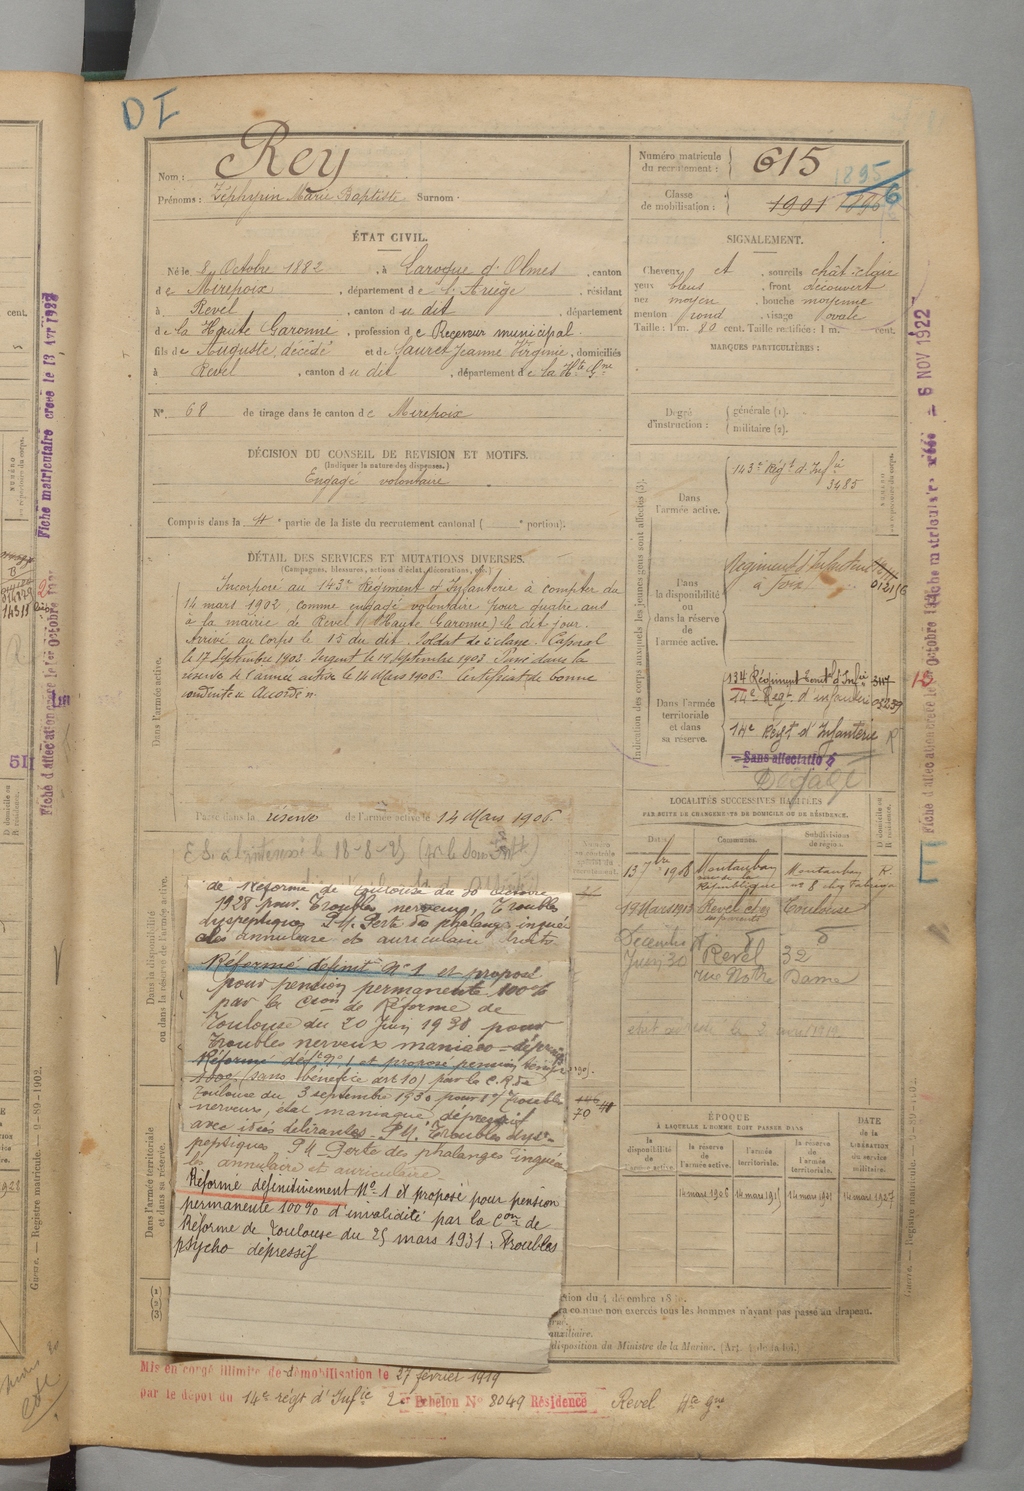 DI
Nom : Rey
Prénoms : Zéphyrin Marie Baptiste Surnom .
Numéro matricule du recrutement : 615
Classe de mobilisation : 1901 1896 1895 6
ÉTAT CIVIL.
Né le 8 Octobre 1882, à Laroque d'Olmes, canton
de Mirepoix, département de l'Ariège, résidant
à Revel, canton du dit, département
de la Haute Garonne, profession de Receveur municipal
fils de Auguste, décédé et de Sauret Jeanne Virginie, domiciliés
à Revel, canton du dit, département de la Hte Gne
N° 68 de tirage dans le canton de Mirepoix
SIGNALEMENT.
Cheveux et, sourcils chât-clair
yeux bleus, front découvert
nez moyen, bouche moyenne
menton rond, visage ovale
Taille : 1 m. 80 cent. Taille rectifiée : 1 m. cent.
MARQUES PARTICULIÈRES :
Degré d'instruction : générale (1). militaire (2).
DÉCISION DU CONSEIL DE REVISION ET MOTIFS.
(Indiquer la nature des dispenses.)
Engagé volontaire
Compris dans la 4e partie de la liste du recrutement cantonal ( e portion).
DÉTAIL DES SERVICES ET MUTATIONS DIVERSES.
(Campagnes, blessures, actions d'éclat, décorations, etc.)
Incorporé au 143e Régiment d'Infanterie à compter du
14 mars 1902, comme engagé volontaire pour quatre ans
à la mairie de Revel (Haute Garonne) le dit jour.
Arrivé au corps le 15 du dit. Soldat de 2e classe. Caporal
le 17 Septembre 1902. Sergent le 19 Septembre 1903. Passé dans la
réserve de l'armée active le 14 Mars 1906. Certificat de bonne
conduite "Accordé".
Passé dans la réserve de l'armée active le 14 Mars 1906
Dans l'armée active.
Dans la disponibilité
ou dans la réserve de l'armée active.
Dans l'armée territoriale
et dans sa réserve.
Indication des corps auxquels les jeunes gens sont affectés (3).
NUMÉRO
au répertoire du corps.
Dans l'armée active.
143e Régt d'Infie
3485
Dans la disponibilité ou dans la réserve de l'armée active.
Régiment d'Infanterie
à Foix
Dans l'armée territoriale et dans sa réserve.
134 Régiment territ d'Infie
14e Regt d'infanterie 05239
14e Régt d'Infanterie R
Sans affectation
Dégagé
LOCALITÉS SUCCESSIVES HABITÉES
PAR SUITE DE CHANGEMENTS DE DOMICILE OU DE RÉSIDENCE.
Dates. Communes. Subdivisions de région. D domicile ou R résidence.
13 7bre 1908 Montauban Montauban R
République
19 Mars 1913 Revel Toulouse
Juin 30 Revel 32
rue Notre Dame
E.S.
de Réforme de Toulouse du 30 octobre
1928 pour. Troubles nerveux, Troubles
dyspeptiques P.M. Perte des phalanges
des annulaire et auriculaire droits
Réformé définit N° 1 et proposé
pour pension permanente 100%
par la Cson de Réforme de
Toulouse du 20 Juin 1930 pour
Troubles nerveux maniaco-dépressifs
Réformé déf N° 1 et proposé pension
100% (sans bénéfice art 10) par la C.R de
Toulouse du 3 septembre 1930 pour Troubles
nerveux, état maniaque dépressif
avec idées délirantes. P.M. Troubles dys-
peptiques P.M. Perte des phalanges
des annulaire et auriculaire
Réformé définitivement N° 1 et proposé pour pension
permanente 100% d'invalidité par la Con de
Réforme de Toulouse du 25 mars 1931 : Troubles
psycho dépressif
70
ÉPOQUE
À LAQUELLE L'HOMME DOIT PASSER DANS
la disponibilité de l'armée active.
la réserve de l'armée active.
l'armée territoriale.
la réserve de l'armée territoriale.
DATE de la LIBÉRATION du service militaire.
14 mars 1906 14 mars 1915 14 mars 1921 14 mars 1927
(1)
(2)
(3)
du 4 décembre 18
comme non exercés tous les hommes n'ayant pas passé au drapeau.
auxiliaire.
disposition du Ministre de la Marine. (Art. 4 de la loi.)
Mis en congé illimité de démobilisation le 27 février 1919
par le dépôt du 14e régt d'Infie 2e Echelon N° 8049 Résidence Revel Hte Gne
Guerre. — Registre matricule. — 9-89-1902.
6 NOV 1922